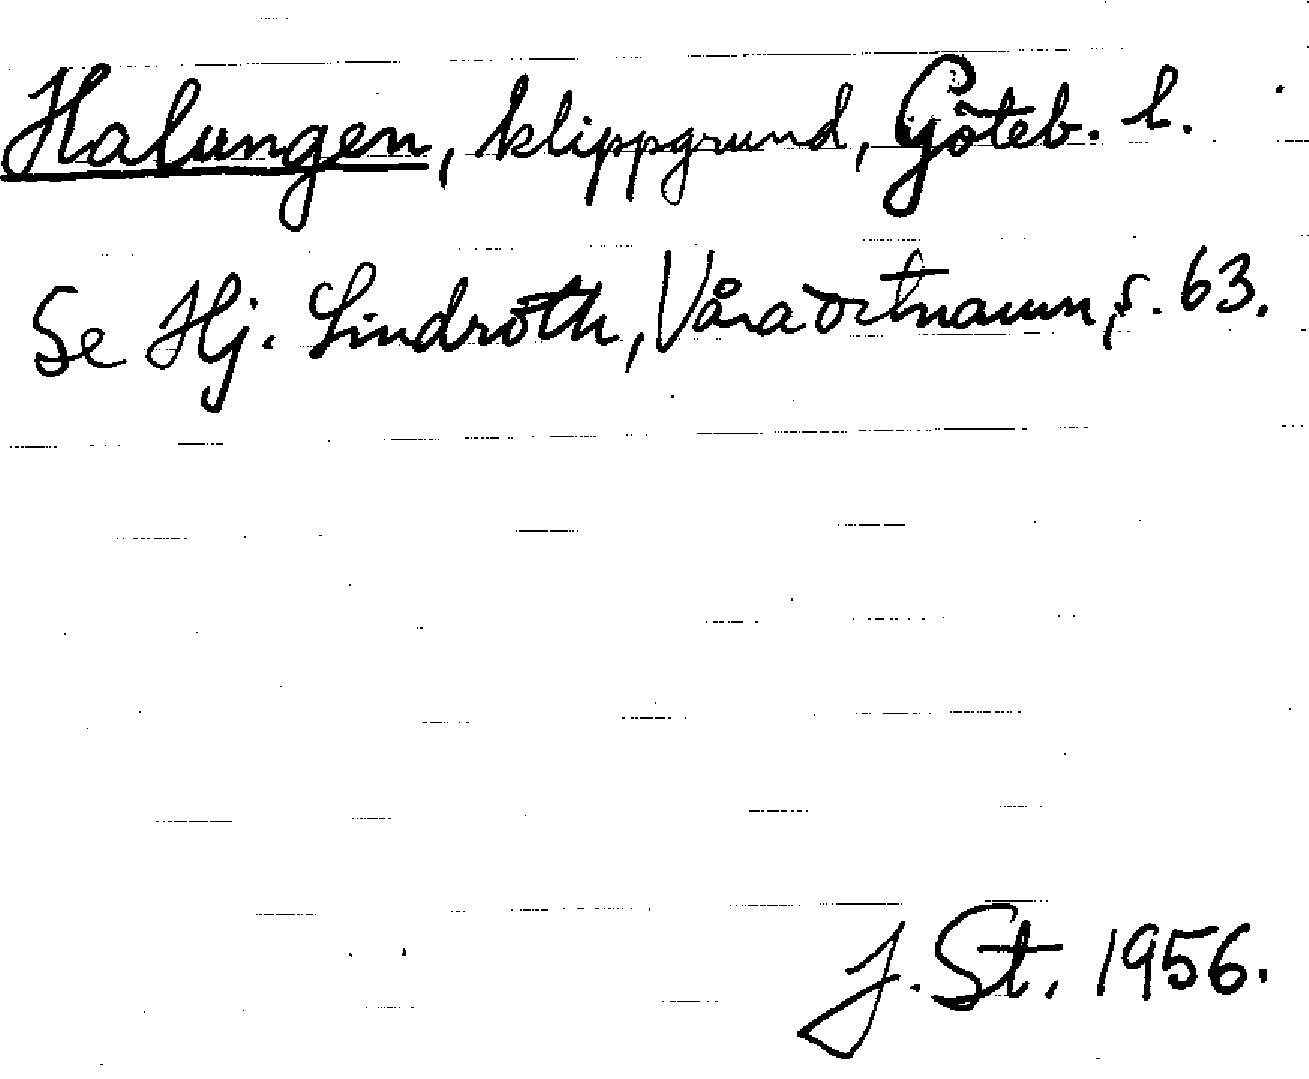 Halungen, klippgrund, Göteb. l.
Se Hj. Lindroth, Våra ortnamn, s. 63.
J. St. 1956.